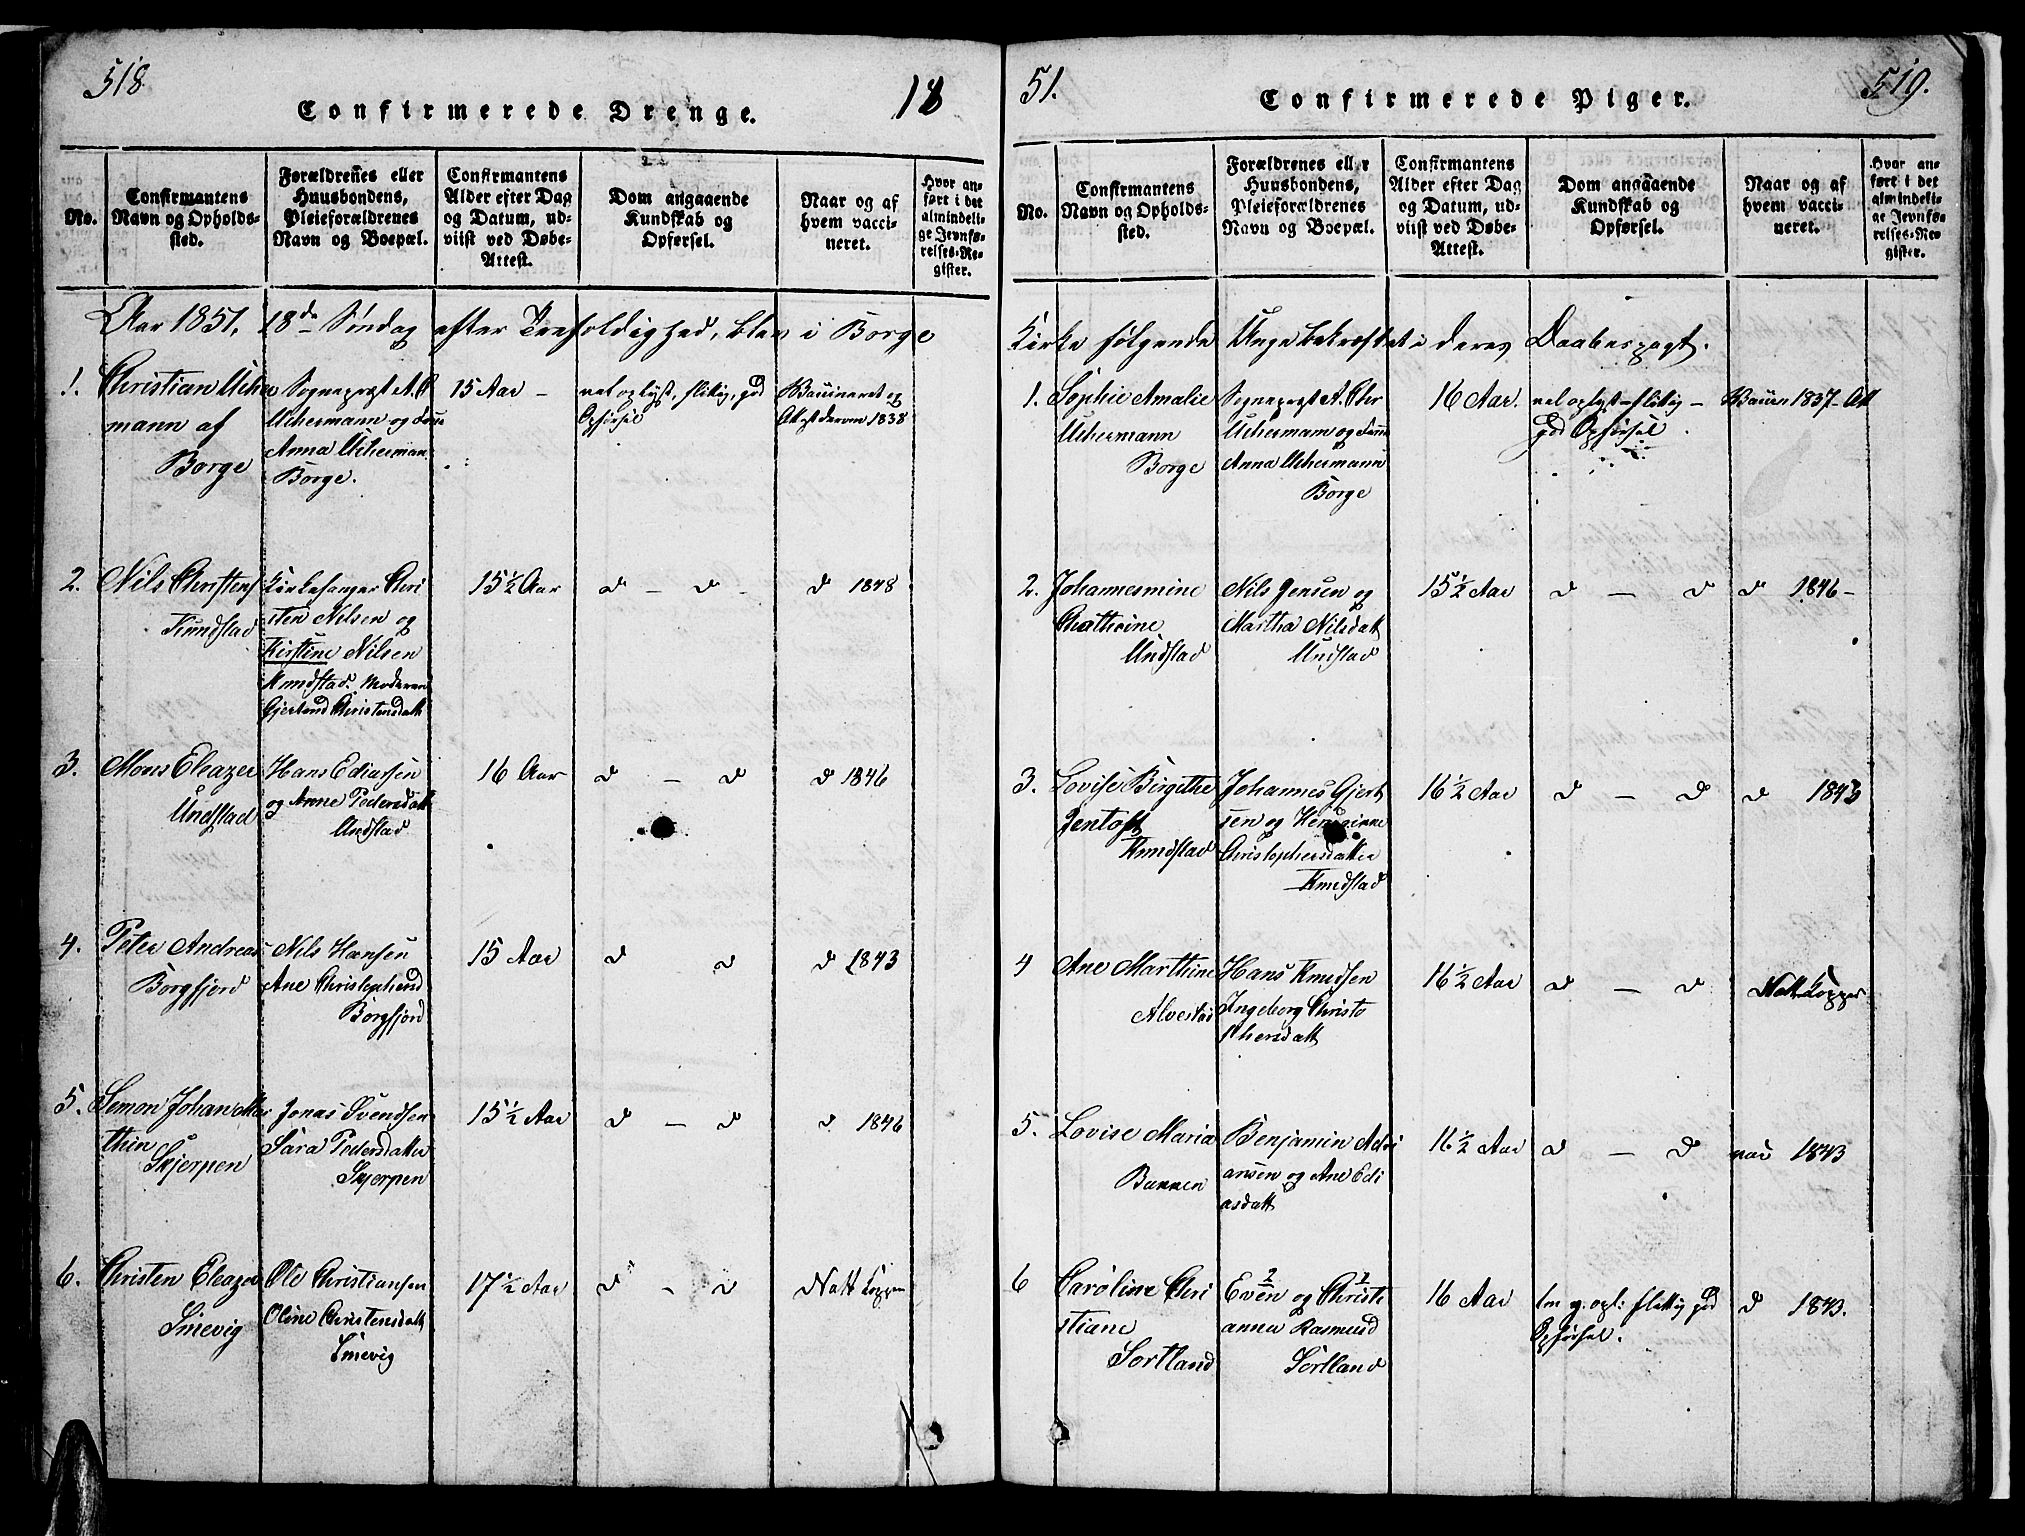 518
Confirmerede Drenge.
18
No.
Confirmantens
Navn og Opholds-
sted.
Forældrenes eller
Huusbondens,
Pleieforældrenes
Navn og Boepæl.
Confirmantens
Alder efter Dag
og Datum, ud-
viist ved Døbe-
Attest.
Dom angaaende
Kundskab og
Opførsel.
Naar og af
hvem vacci-
neret.
Hvor an-
ført i det
almindeli-
ge Jevnfø-
relses-Re-
gister.
Aar 1851, 18de Søndag efter Trefoldighed, blev i Borge
1. Christian Ucher
mann af
Borge
Sognepræst A. C
Uchermann og
Anna Ucherman
Borge.
15 Aar -
vel oplyst, flittig, god
Opførsel
Vaccineret og
Attest derom 1838
2. Nils Christens
Knudstad
Kirkesanger Chri
sten Nilsen og
Kirstine Nilsen
Knudstad. Moderen
Gjertrud Christensdatt
15 1/2 Aar
d - d -
d 1848
3. Mons Eleazer
Undstad
Hans Ediassen
og Anne Pedersdatt
Undstad
16 Aar
d - d
d 1846
4. Peter Andreas
Borgfjord
Nils Hansen
Ane Christophersd
Borgfjord
15 Aar
d d
d 1843
5. Simon Johan Mar
thin
Skjerpen
Jonas Svendsen
Sara Pedersdatter
Skjerpen
15 1/2 Aar
d - d
d. 1846
6. Christen Eleazer
Smevig
Ole Christiansen
Oline Christensdatt
Smevig
17 1/2 Aar
d - d
Natt. Kopper
51.
Confirmerede Piger.
519.
No.
Confirmantens
Navn og Opholds-
sted.
Forældrenes eller
Huusbondens,
Pleieforældrenes
Navn og Boepæl.
Confirmantens
Alder efter Dag
og Datum, ud-
viist ved Døbe-
Attest.
Dom angaaende
Kundskab og
Opførsel.
Naar og af
hvem vacci-
neret.
Hvor an-
ført i det
almindeli-
ge Jevnfø-
relses-Re-
gister.
Kirke følgende Unge bekræftet i deres Daabespagt.
1. Sophie Amalie
Uchermann
Borge
Sognepræst A. Chr
Uchermann og
Anna Uchermann
Borge
16 Aar.
vel oplyst - flittig -
god Opførsel.
Vaccin 1837 - Att
2. Johannesmine
Chathrine
Undstad
Nils Jensen og
Martha Nilsdatt
Undstad
15 1/2 Aar
d - d
d 1846 -
3. Lovise Birgithe
Jentoft
Knudstad
Johannes Gjert
sen og
Christophersdatter
Knudstad
16 1/2 Aar
d - d
d 1843
4 Ane Marthine
Alvestad
Hans Knudsen
Ingeborg Christo
phersdatt
16 1/2 Aar
d - d
Natt. Kopper
5. Lovise Maria
Bunnen
Benjamin Adri
ansen og Ane Edi
asdatt
16 1/2 Aar
d - d
vac 1843
6 Caroline Chri
stiane
Sortland
Even og Christi
anna Rasmusd
Sortland
16 Aar
tm g. opl: flittig god
Opførsel.
d 1843.